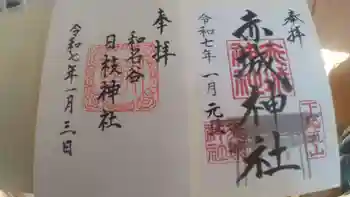 奉拝
赤城神社
令和七年一月元旦
奉拝
和名谷
日枝神社
令和七年一月三日